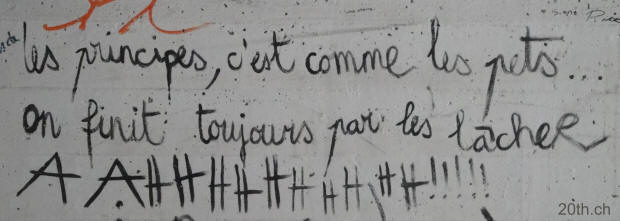 les principes, c'est comme les pets...
on finit toujours par les lâcher
A AHHHHHHHHHH!!!!!
20th.ch